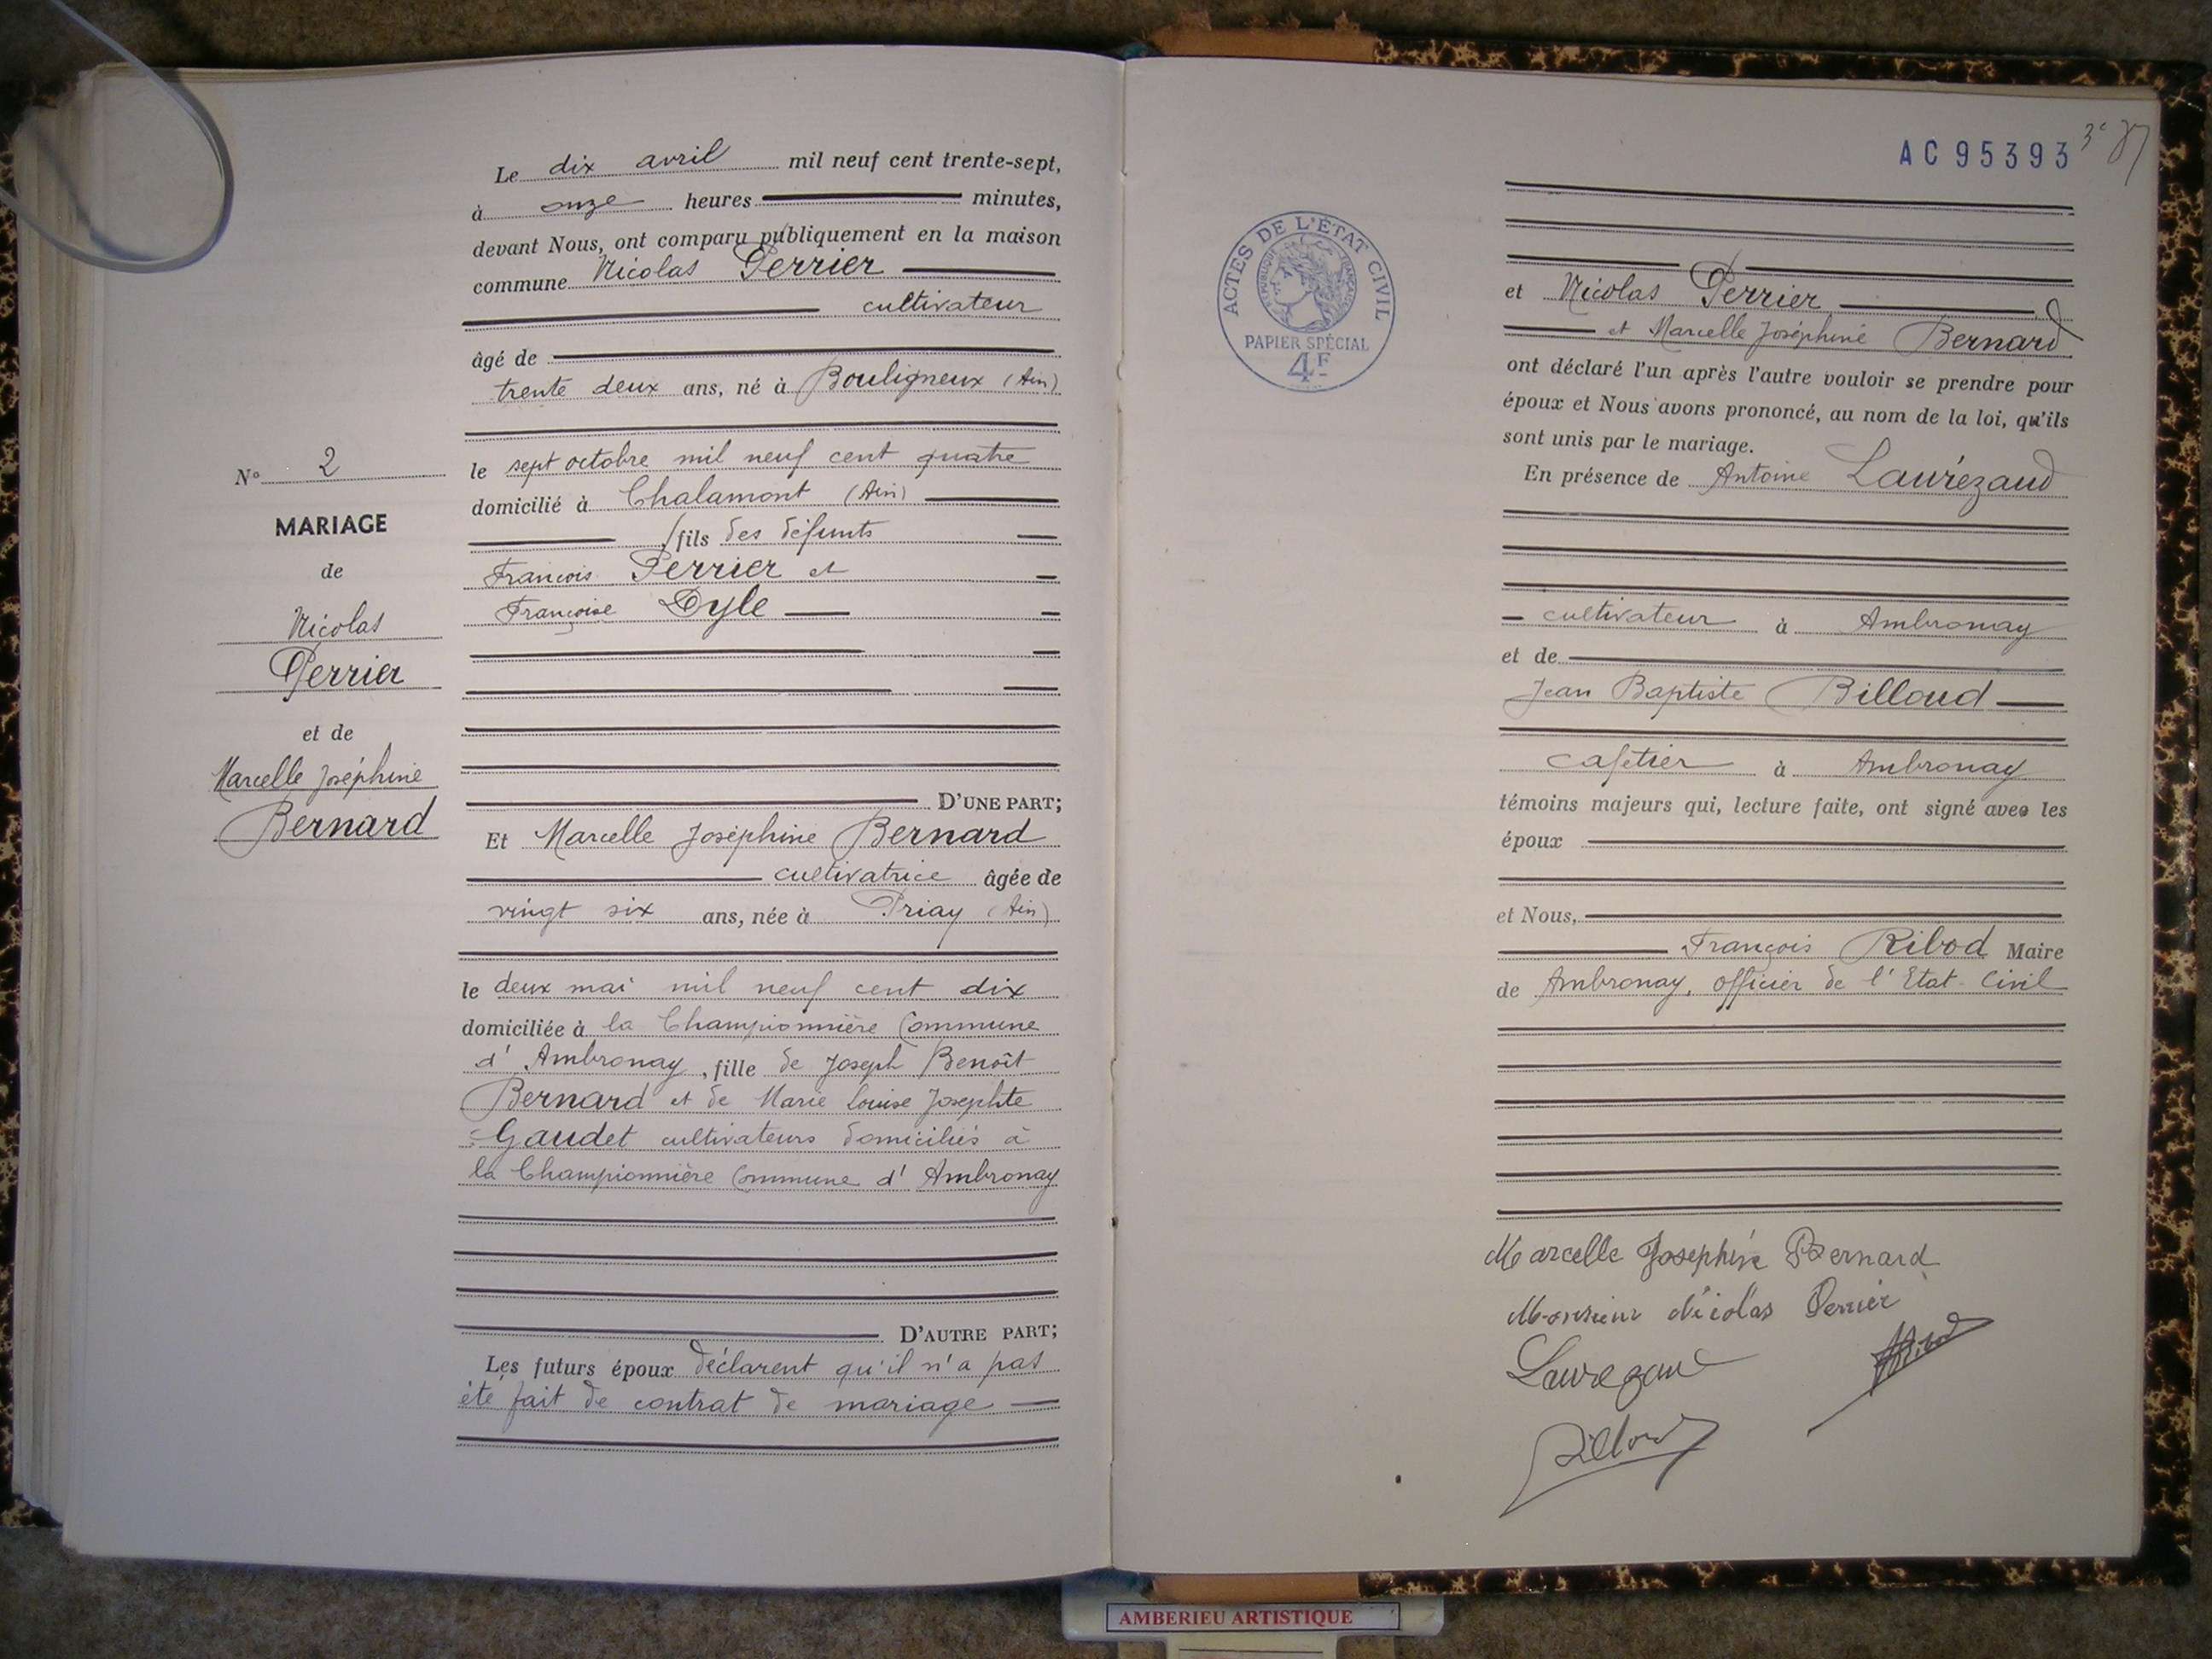 Le dix avril mil neuf cent trente-sept,
à onze heures minutes,
devant Nous, ont comparu publiquement en la maison
commune Nicolas Perrier
cultivateur
âgé de
trente deux ans, né à Bouligneux (Ain)
le sept octobre mil neuf cent quatre
domicilié à Chalamont (Ain)
fils des défunts
François Perrier et
Françoise Dyle
D'UNE PART;
Et Marcelle Joséphine Bernard
cultivatrice âgée de
vingt six ans, née à Priay (Ain)
le deux mai mil neuf cent dix
domiciliée à la Championnière Commune
d'Ambronay, fille de Joseph Benoît
Bernard et de Marie Louise Josephte
Gaudet cultivateurs domiciliés à
la Championnière Commune d'Ambronay
D'AUTRE PART;
Les futurs époux déclarent qu'il n'a pas
été fait de contrat de mariage
N° 2
MARIAGE
de
Nicolas
Perrier
et de
Marcelle Joséphine
Bernard
AC 95393
ACTES DE L'ÉTAT CIVIL
RÉPUBLIQUE FRANÇAISE
PAPIER SPÉCIAL
4F
et Nicolas Perrier
et Marcelle Joséphine Bernard
ont déclaré l'un après l'autre vouloir se prendre pour
époux et Nous avons prononcé, au nom de la loi, qu'ils
sont unis par le mariage.
En présence de Antoine Laurézaud
cultivateur à Ambronay
et de
Jean Baptiste Billoud
cafetier à Ambronay
témoins majeurs qui, lecture faite, ont signé avec les
époux
et Nous,
François Ribod Maire
de Ambronay, officier de l'Etat-Civil
Marcelle Josephine Bernard
Monsieur Nicolas Perrier
AMBERIEU ARTISTIQUE